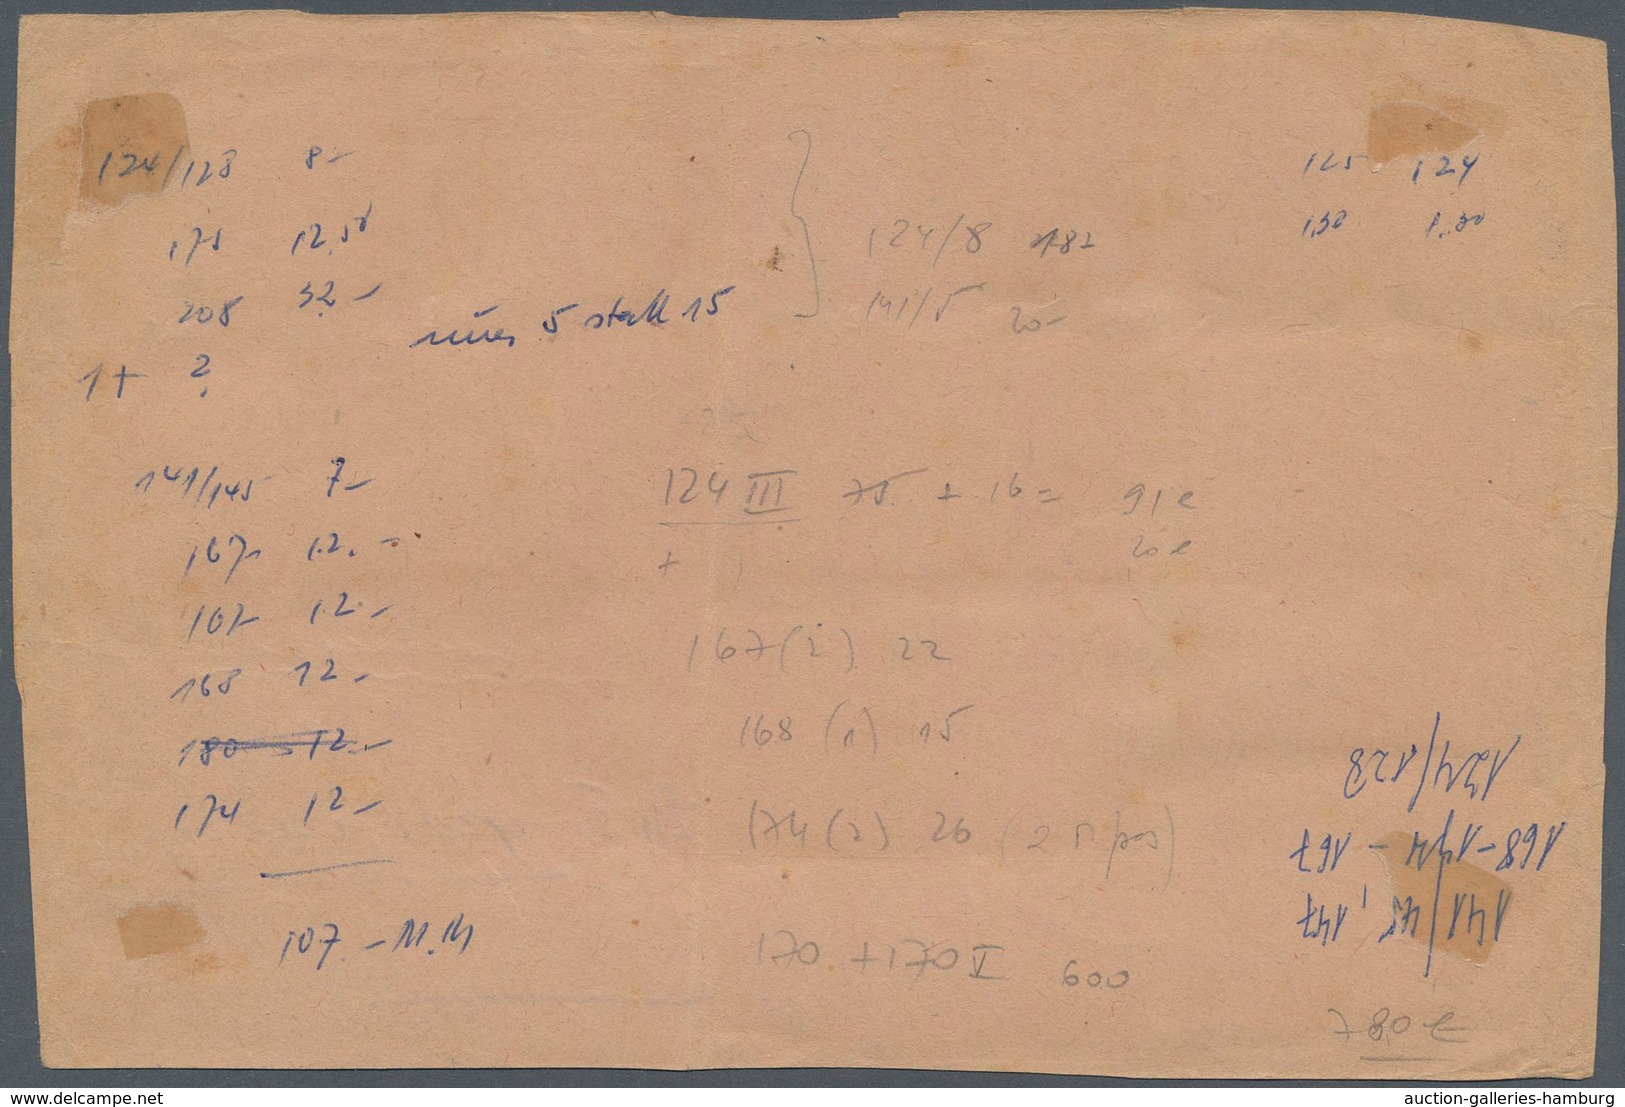 124/128 8-
175 12,50
208 32-
nur 5 statt 15
1+ ?
141/145 7-
167 12.-
167 12.-
168 12.-
180 12.-
174 12-
107.- M.M
124/8 182
141/5 20-
124 III 75 + 16 = 91 €
+ 20 €
167 (2) 22
168 (1) 15
174 (2) 26 (2
170 + 170 V 600
780 €
125 124
1,30 1,30
141/45, 147
168-174-167
124/128
www.delcampe.net
auction-galleries-hamburg